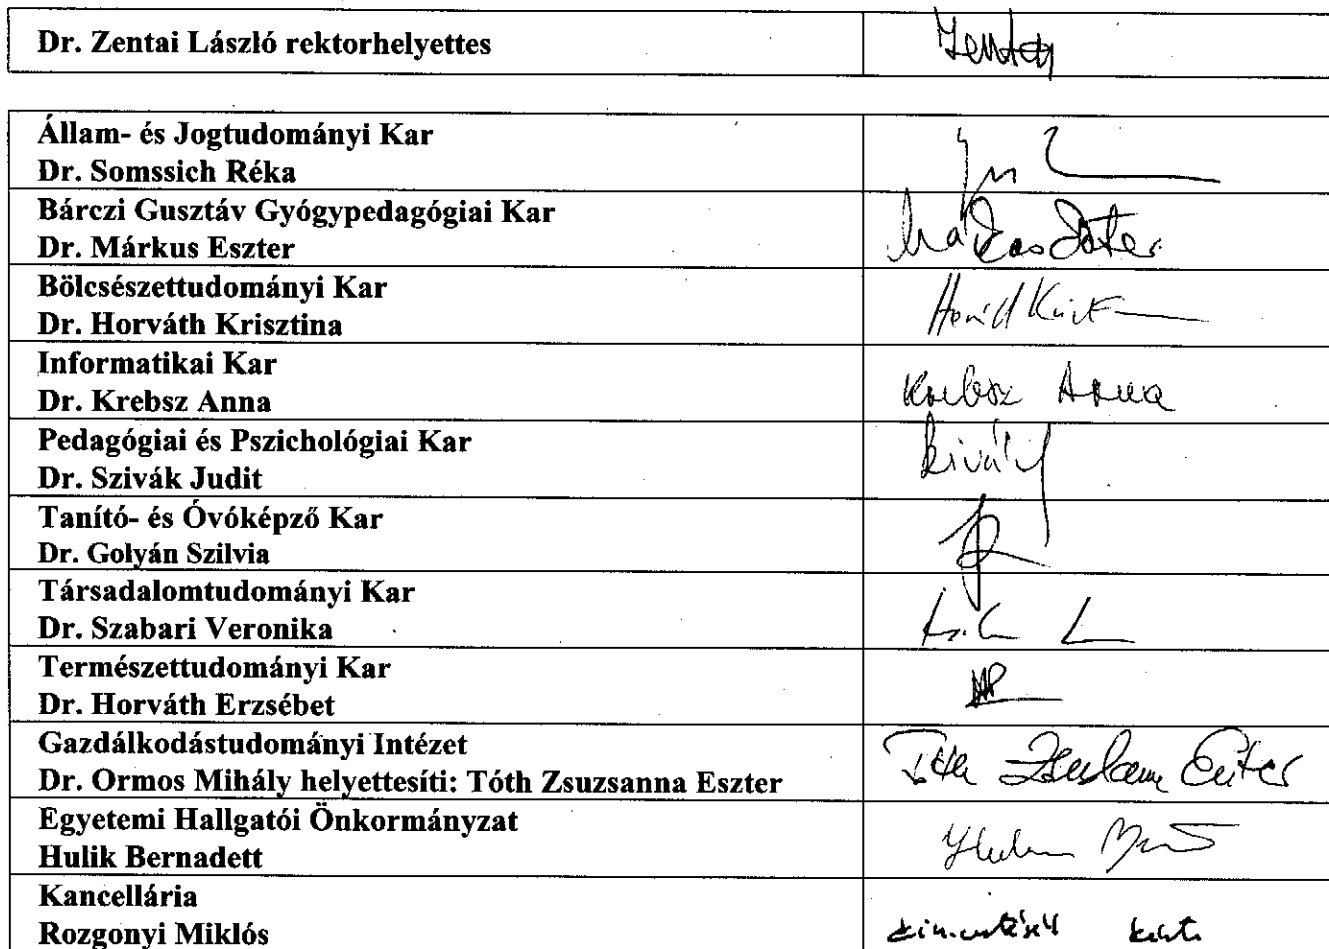 Dr. Zentai László rektorhelyettes
Zentai
Állam- és Jogtudományi Kar
Dr. Somssich Réka
Bárczi Gusztáv Gyógypedagógiai Kar
Dr. Márkus Eszter
Márkus Eszter
Bölcsészettudományi Kar
Dr. Horváth Krisztina
Horváth Kriszt
Informatikai Kar
Dr. Krebsz Anna
Krebsz Anna
Pedagógiai és Pszichológiai Kar
Dr. Szivák Judit
Tanító- és Óvóképző Kar
Dr. Golyán Szilvia
Társadalomtudományi Kar
Dr. Szabari Veronika
Természettudományi Kar
Dr. Horváth Erzsébet
Gazdálkodástudományi Intézet
Dr. Ormos Mihály helyettesíti: Tóth Zsuzsanna Eszter
Tóth Zsuzsanna Eszter
Egyetemi Hallgatói Önkormányzat
Hulik Bernadett
Kancellária
Rozgonyi Miklós
kimentését kérte